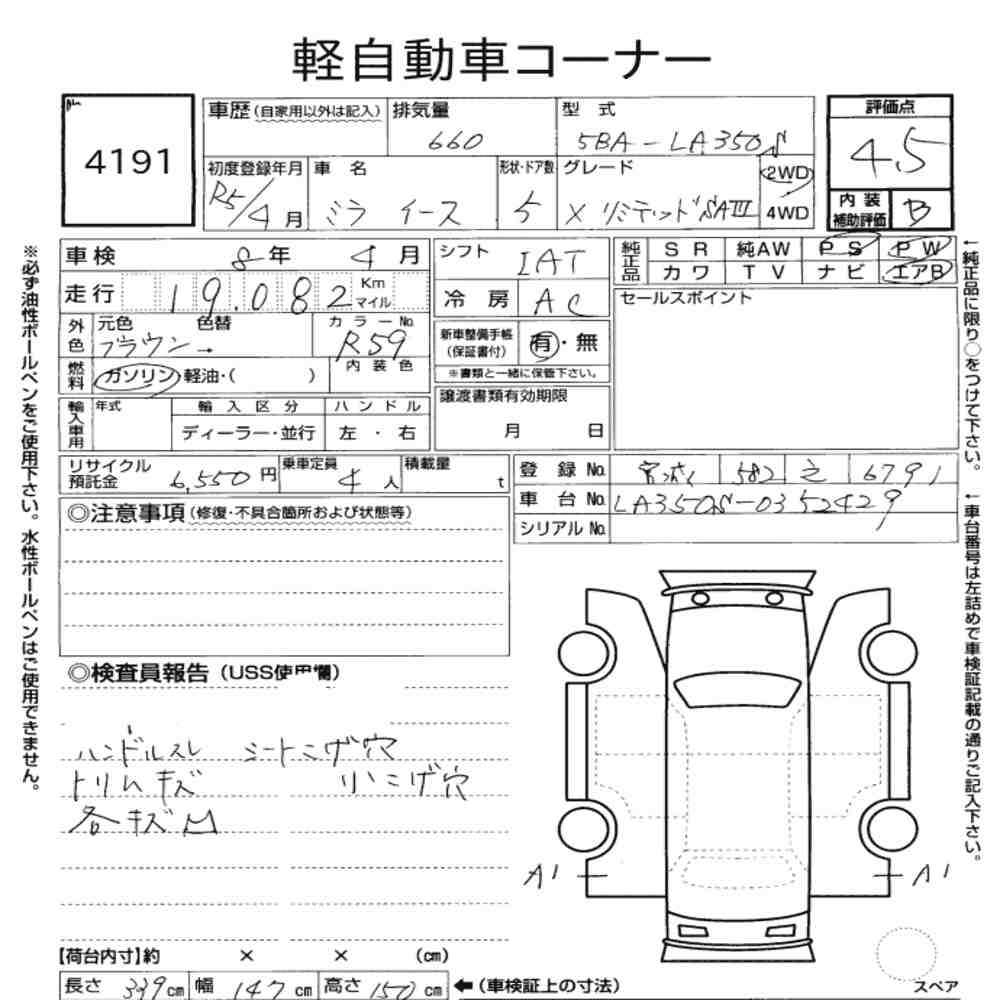 軽自動車コーナー
4191
車歴(自家用以外は記入) 排気量 660 型式 5BA-LA350S 評価点 4.5
初度登録年月 R5/4月 車名 ミラ イース 形状・ドア数 5 グレード X リミテッド SAIII 2WD 4WD 内装補助評価 B
車検 8年 4月 シフト IAT 純正品 SR 純AW PS PW
カワ TV ナビ エアB
走行 19.082 Km マイル 冷房 AC セールスポイント
外色 元色 ブラウン 色替 → カラーNo. R59 新車整備手帳(保証書付) 有・無
燃料 ガソリン・軽油・( ) 内装色 ※書類と一緒に保管下さい。
輸入車用 年式 輸入区分 ハンドル 譲渡書類有効期限
ディーラー・並行 左・右 月 日
リサイクル預託金 6,550円 乗車定員 4人 積載量 t 登録No. 582 6791
車台No. LA350S-0352429
シリアルNo.
◎注意事項(修復・不具合箇所および状態等)
◎検査員報告(USS使用欄)
ハンドルスレ シートこげ穴
トリムキズ 小こげ穴
各キズ凹
A1 A1
【荷台内寸】約 × × (cm)
長さ 339cm 幅 147cm 高さ 150cm ←(車検証上の寸法)
スペア
※必ず油性ボールペンをご使用下さい。水性ボールペンはご使用できません。
←純正品に限り○をつけて下さい。
←車台番号は左詰めで車検証記載の通りご記入下さい。